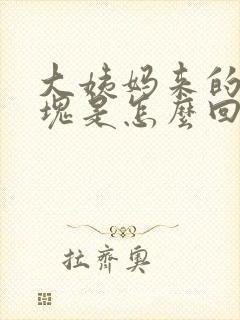 大姨妈来的
塊是怎麼回
拉齊奧